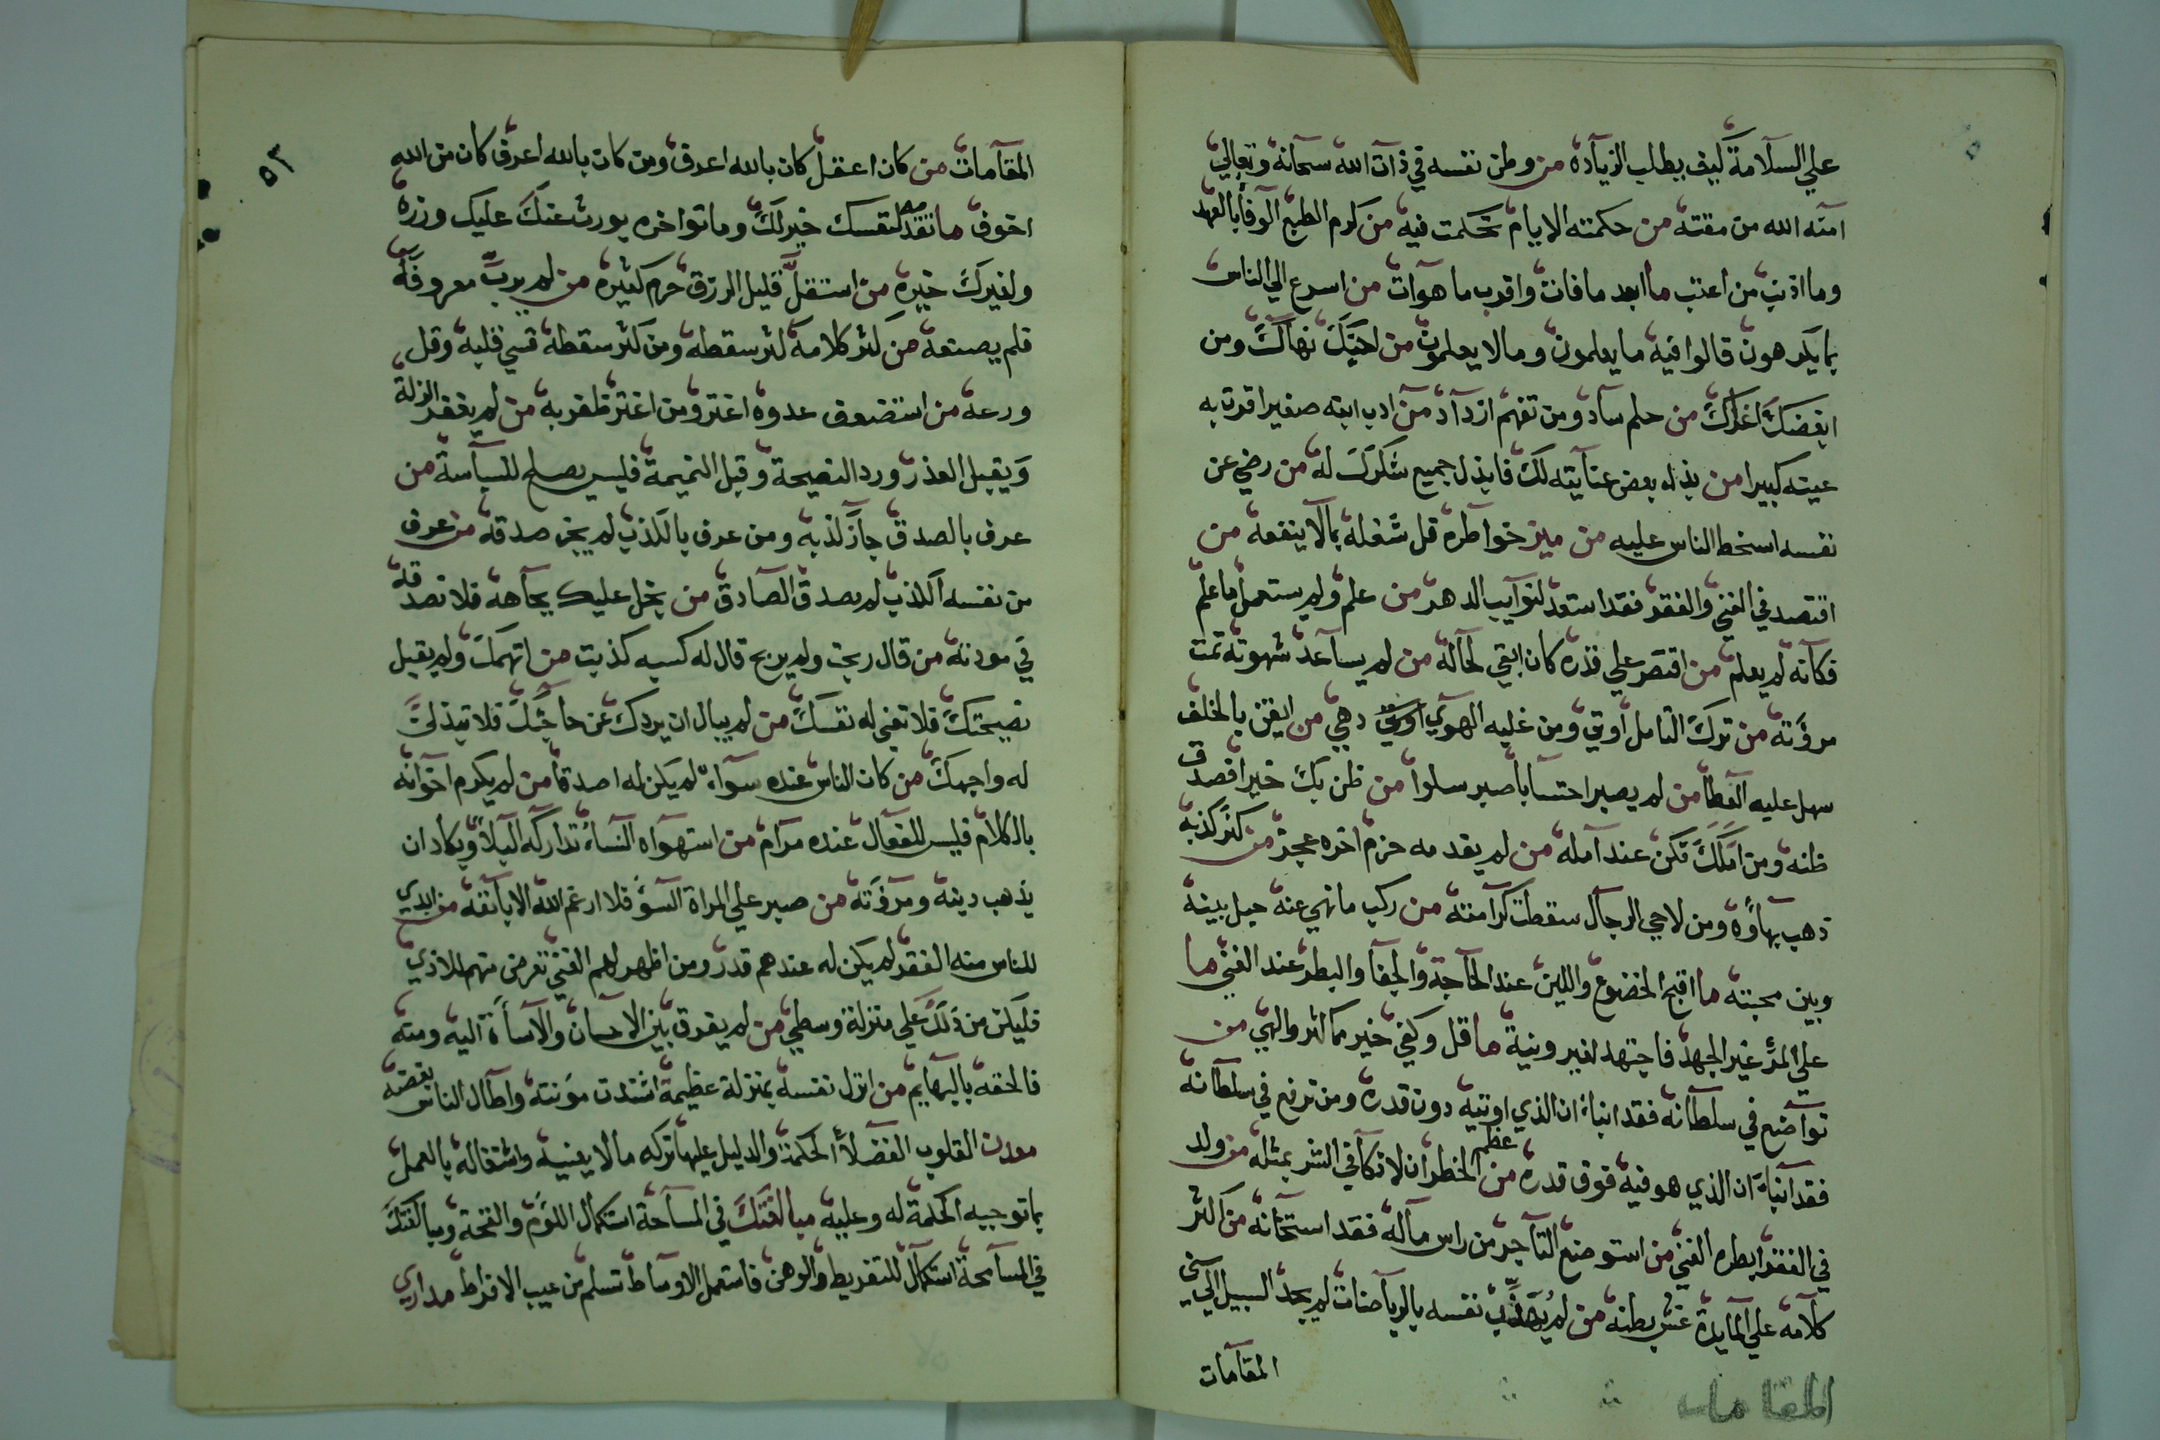 علي السلامة كيف يطلب الزيادة من وطن نفسه في ذات الله سبحانه وتعالي
امنه الله من مقته من حكمته الايام تحكمت فيه من كرم الطبع الوفا بالعهد
وما اذنب من اعتب ما ابعد ما فات واقرب ما هوآت من اسرع الي الناس
بما يكرهون قالوا فيه ما يعلمون وما لا يعلمون من احبَّكَ نهاكَ ومن
ابغضكَ اغراكَ من حلم ساد ومن تفهم ازداد من ادب ابنه صغيرا قرت به
عينه كبيرا من بذل بعض عنايته لك فابذل جميع شكرك له من رضي عن
نفسه اسخط الناس عليه من ميز خواطره قل شغله بما لا ينفعه من
اقتصد في الغني والفقر فقد استعد لنوايب الدهر من علم ولم يستعمل ما علم
فكأنه لم يعلم من اقتصر علي قدره كان ابقي لحاله من لم يساعد شهوته تمت
مروَته من ترك التامل اوتي ومن غلبه الهوي دهي من ايقن بالخلف
سهل عليه العطا من لم يصبر احتسابا صبر سلوا من ظن بك خيرا فصدق
ظنه ومن امَّلكَ فكن عند آمله من لم يقدمه حزم اخره عجز من كثر كذبه
ذهب بهاؤه ومن لاحي الرجال سقطت كرامته من ركب ما نهي عنه حيل بينه
وبين محبته ما اقبح الخضوع واللين عند الحاجة والجفا والبطر عند الغني ما
علي المرء غير الجهد فاجتهد لغير ونية ما قل وكفي خير مما كثر والهي من
تواضع في سلطانه فقد انباء ان الذي اوتيه دون قدره ومن ترفع في سلطانه
فقد انباءَ ان الذي هو فيه فوق قدره من عظم الخطر ان لا تكافي الشر بمثله من ولد
في الفقر ابطره الغني من استوضع التاجر من راس ماله فقد استخانه من اكثر
كلامه علي المايدة غش بطنه من لم يُهذِّب نفسه بالرياضات لم يجد السبيل الي سني
المقامات
المقامات
٥٣
المقامات من كان اعقل كان بالله اعرف ومن كان بالله اعرف كان من الله
اخوف ما تقدمه لنفسك خير لكَ وما تواخره يورث عنكَ عليك وزره
ولغيرك خيره من استقلَّ قليل الرزق حرم كثيره من لم يربِّ معروفه
فلم يصنعه من كثر كلامه كثر سقطه ومن كثر سقطه قسي قلبه وقل
ورعه من استضعف عدوه اغتر ومن اغتر ظفر به من لم يغفر الزلة
وَيقبل العذر ورد النصيحة وقبل النميمة فليس يصلح للسياسة من
عرف بالصدق جاز كذبه ومن عرف بالكذب لم يجز صدقه من عرف
من نفسه الكذب لم يصدق الصادق من بخل عليك بجاهه فلا تصدقه
في مودته من قال ربحت ولم يربح قال له كسبه كذبت من اتهمك ولم يقبل
نصيحتكَ فلا تعني له نفسكَ من لم يبال ان يردك عن حاجتكَ فلا تبذلنَّ
له واجهكَ من كان الناس عنده سواء لم يكن له اصدقا من لم يكرم اخوانه
بالكلام فليس للفعال عنده مرام من استهواه النساء تداركه البلاء وكاد ان
يذهب دينه ومروَته من صبر علي المراة السوء فلا ارغم الله الا بانفه من ابدي
للناس منه الفقر لم يكن له عندهم قدر ومن اظهر لهم الغني تعرض منهم للاذي
فليكن من ذلكَ علي منزلة وسطي من لم يفرق بين الاحسان والاساءة اليه ومنه
فالحقه بالبهايم من انزل نفسه بمنزلة عظيمة اشتدت موَنته واطال الناس بغضه
معدن القلوب الفضلاء الحكمة والدليل عليها تركه ما لا يعنيه واشتغاله بالعمل
بما توجبه الحكمة له وعليه مبالغتكَ في المساحة استكمال اللوَم والقحة ومبالغتكَ
في المسامحة استكمال للتفريط والوهن فاستعمل الاوساط تسلم من عيب الافراط مداري